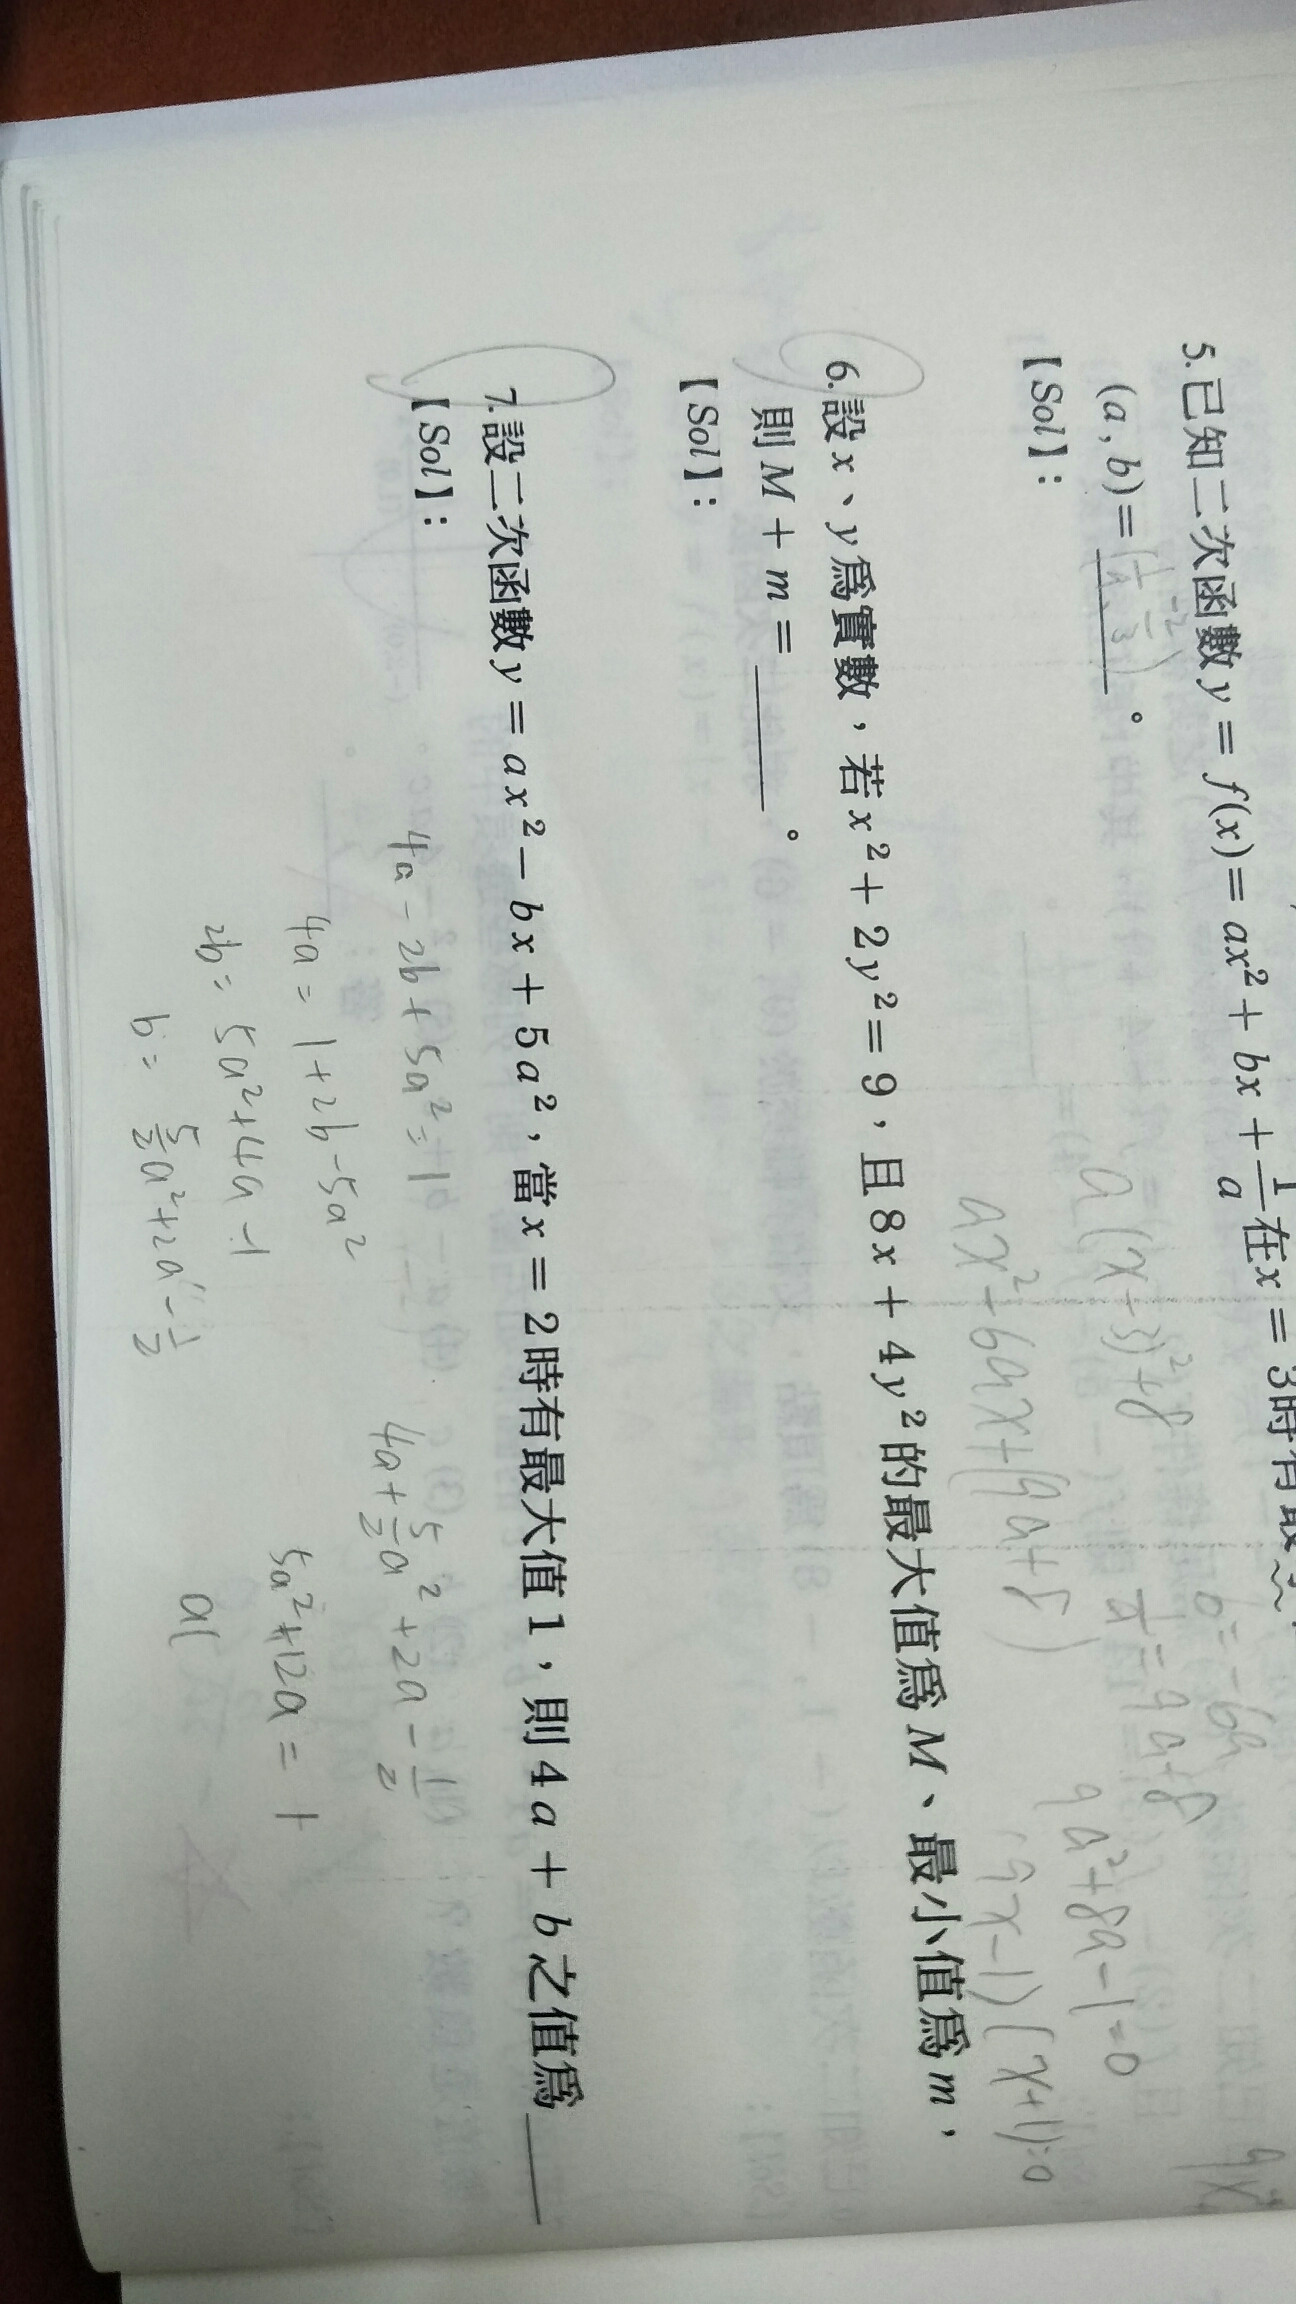 5.已知二次函數y = f(x) = ax² + bx + 1/a 在x = 3時有最
(a,b) = ______。
【Sol】:
a(x+3)²+8
ax²+6ax+(9a+8)
b=-6a
1/a = 9a+8
9a²+8a-1=0
(9x-1)(x+1)=0
6.設x、y為實數,若x²+2y²=9,且8x+4y²的最大值為M、最小值為m,
則M+m=______。
【Sol】:
7.設二次函數y=ax²-bx+5a²,當x=2時有最大值1,則4a+b之值為____
【Sol】:
4a-2b+5a²=1
4a=1+2b-5a²
2b=5a²+4a-1
b=5/2a²+2a-1/2
4a+5/2a²+2a-1/2
5a²+12a=1
a(